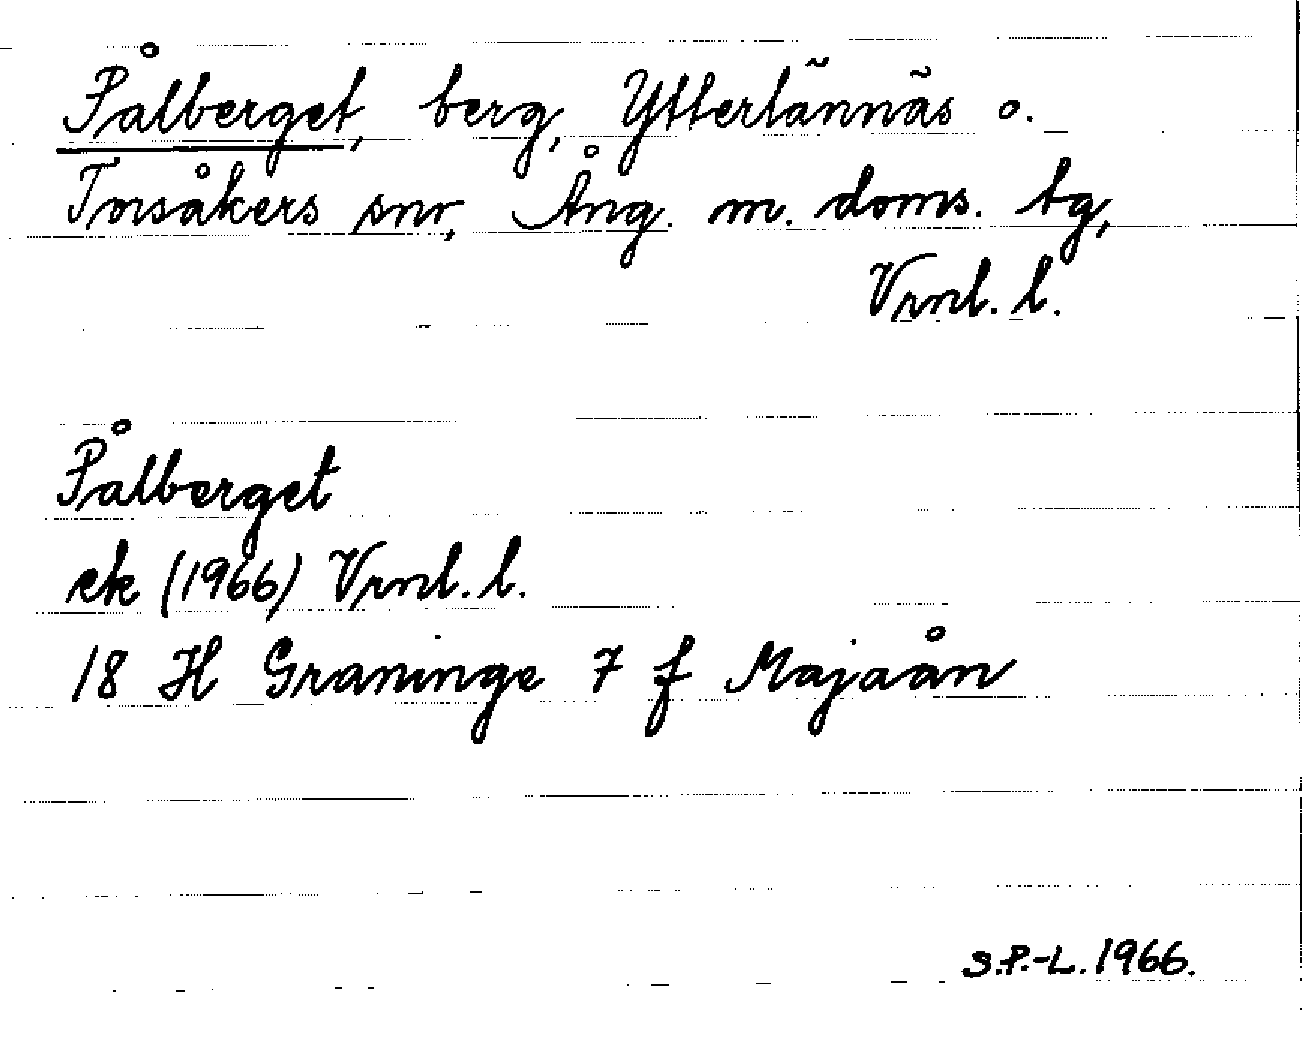 Pålberget, berg, Ytterlännäs o.
Torsåkers snr, Ång. m. doms. tg,
Vrnl. l.
Pålberget
ek (1966) Vrnl. l.
18 H Graninge 7 f Majaån
S.P.-L. 1966.